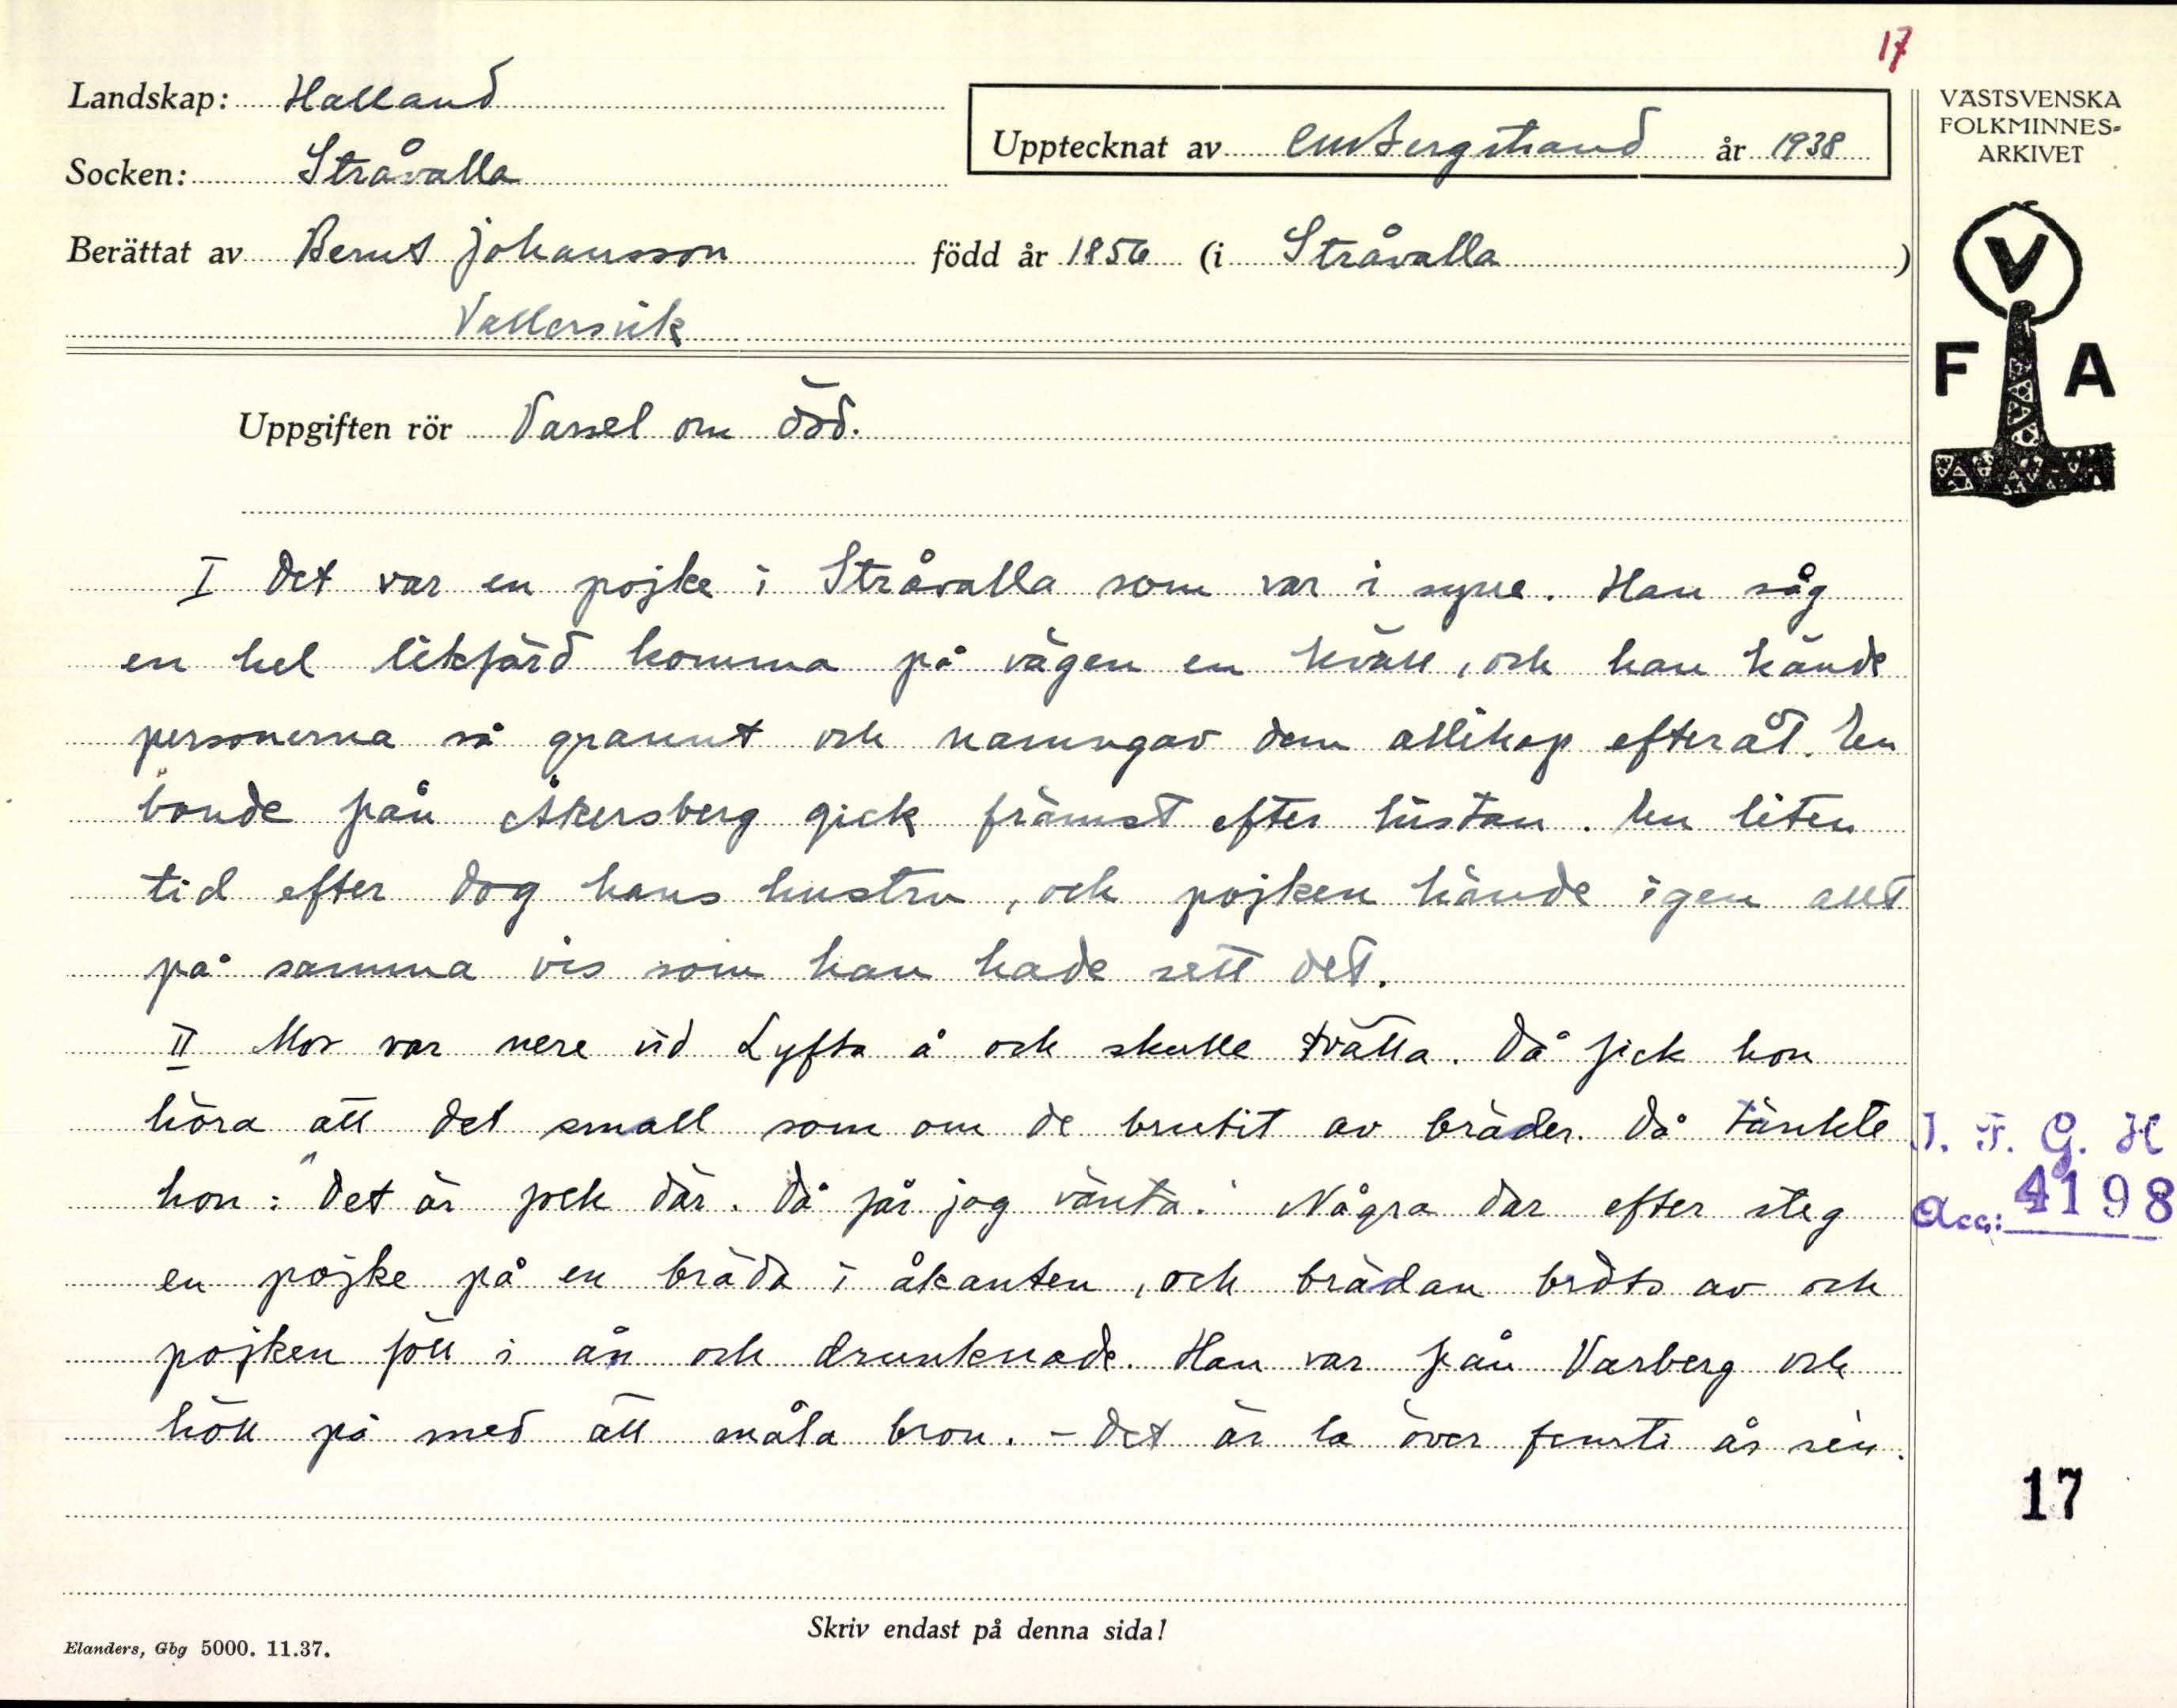 17
Landskap: Halland
Upptecknat av CM Bergstrand år 1938
VÄSTSVENSKA
FOLKMINNES-
ARKIVET
Socken: Stråvalla
Berättat av Bernt Johansson född år 1856 (i Stråvalla)
Vallersvik
V
F A
Uppgiften rör Varsel om död.
I Det var en pojke i Stråvalla som var i syne. Han såg
en hel likfärd komma på vägen en kväll, och han kände
personerna så grannt och namngav dem allihop efteråt. En
bonde från Åkersberg gick främst efter kistan. En liten
tid efter dog hans hustru, och pojken kände igen allt
på samma vis som han hade sett det.
II Mor var nere vid Lyfta å och skulle tvätta. Då fick hon
höra att det small som om de brutit av bräder. Då tänkte
hon: "Det är folk där. Då får jag vänta." Några dar efter steg
en pojke på en bräda i åkanten, och brädan bröts av och
pojken föll i ån och drunknade. Han var från Varberg och
höll på med att måla bron. - Det är la över femti år sen.
I. F. G. H
Acc: 4198
17
Skriv endast på denna sida!
Elanders, Gbg 5000. 11.37.